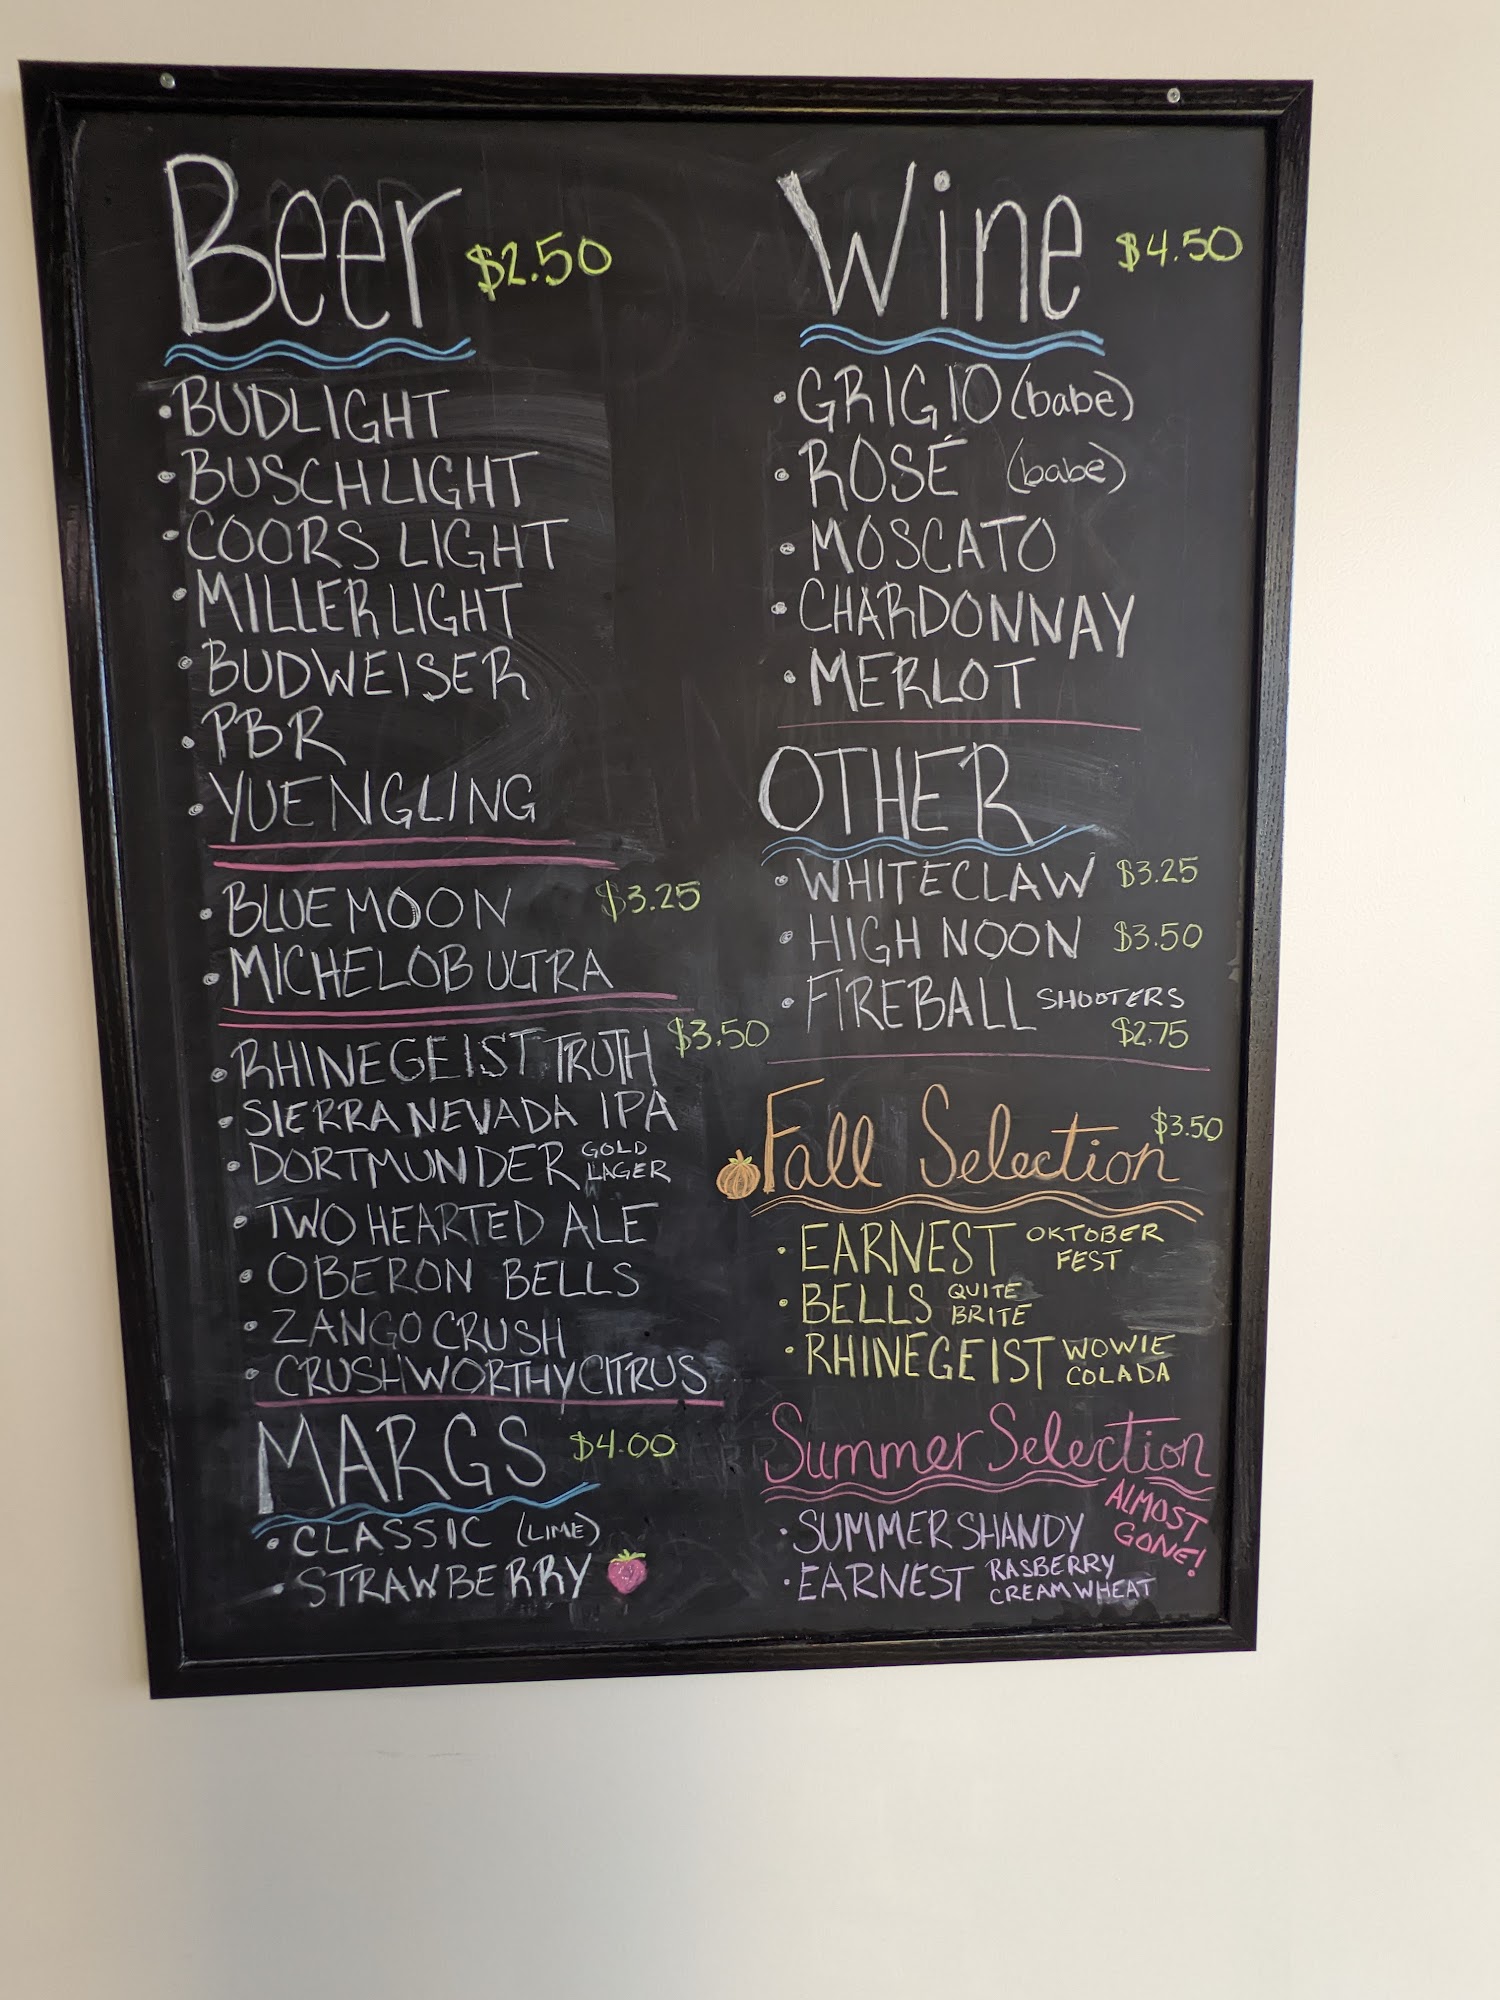 Beer $2.50
BUDLIGHT
BUSCH LIGHT
COORS LIGHT
MILLER LIGHT
BUDWEISER
PBR
YUENGLING
BLUE MOON $3.25
MICHELOB ULTRA
RHINEGEIST TRUTH $3.50
SIERRA NEVADA IPA
DORTMUNDER GOLD
LAGER
TWO HEARTED ALE
OBERON BELLS
ZANGO CRUSH
CRUSHWORTHY CITRUS
MARGS $4.00
CLASSIC (LIME)
STRAWBERRY
Wine $4.50
GRIGIO (babe)
ROSÉ (babe)
MOSCATO
CHARDONNAY
MERLOT
OTHER
WHITECLAW $3.25
HIGH NOON $3.50
FIREBALL SHOOTERS
$2.75
Fall Selection $3.50
EARNEST OKTOBER
FEST
BELLS QUITE
BRITE
RHINEGEIST WOWIE
COLADA
Summer Selection
ALMOST
GONE!
SUMMER SHANDY
EARNEST RASBERRY
CREAM WHEAT